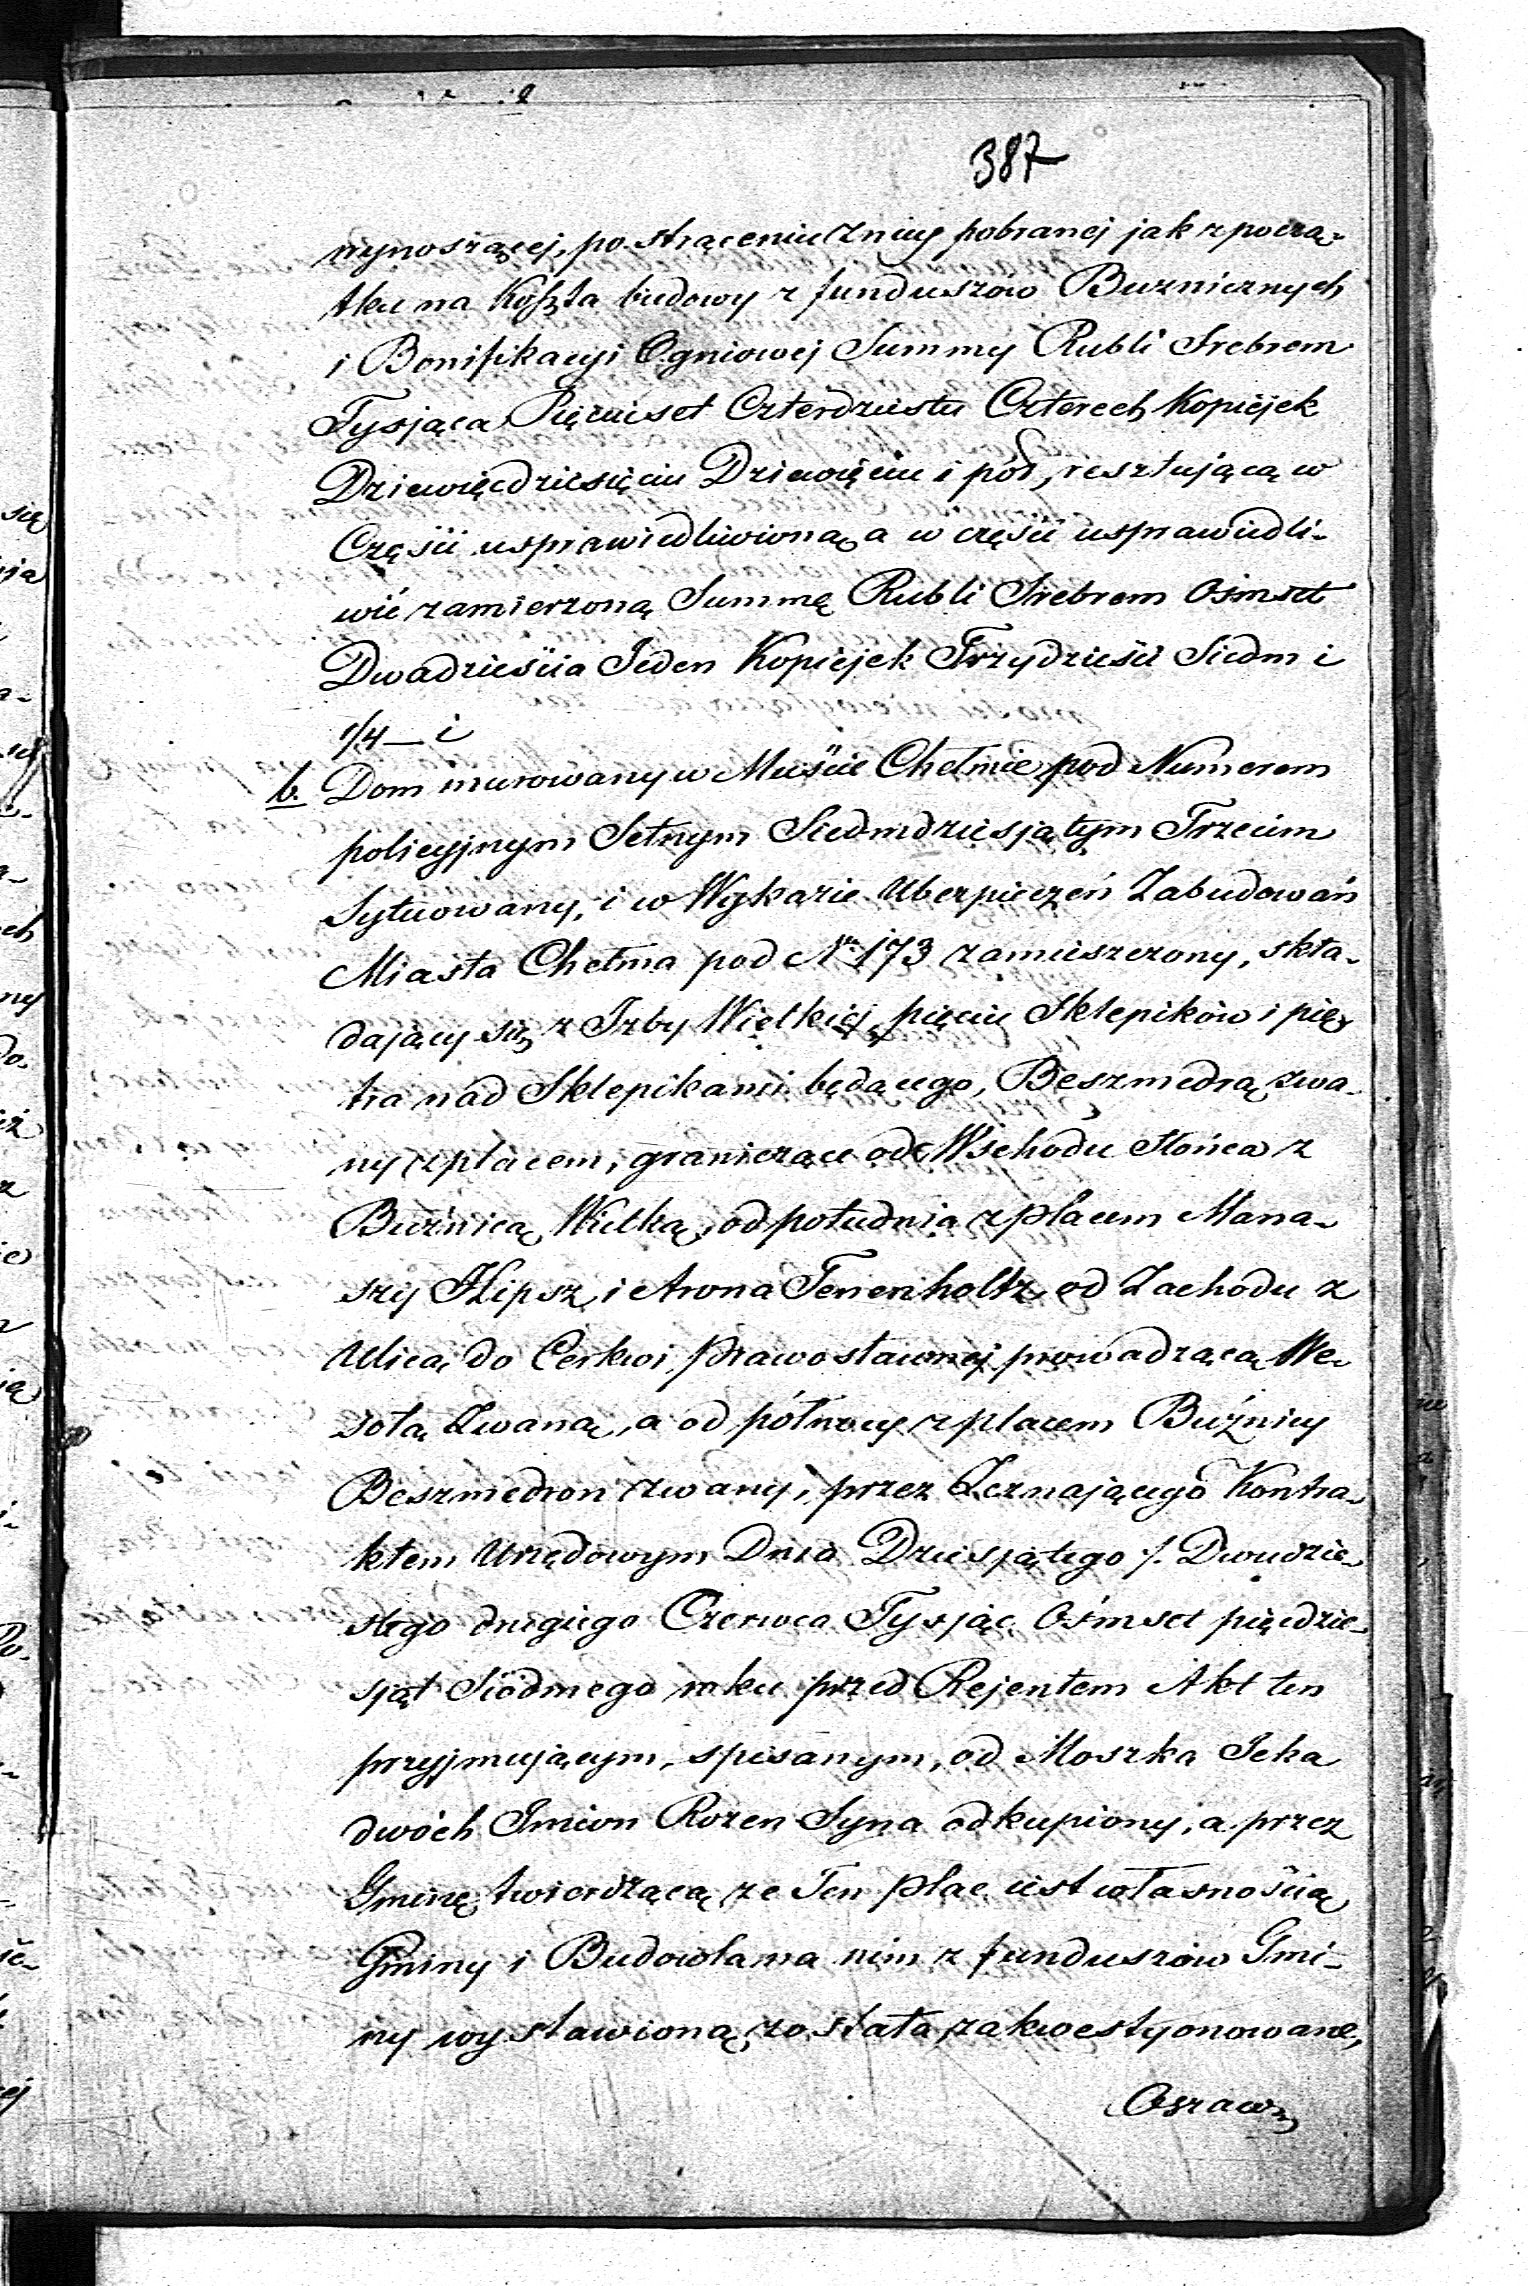 387
wynoszącej, po strąceniu z niej pobranej jak z począ-
tku na Koszta budowy z funduszów Buzniczych
i Bonifikacyi Ogniowej Summy Rubli Srebrem
Tysjąca Pięciuset Czterdziestu Czterech Kopiejek
Dziewięćdziesięciu Dziewięciu i pół, resztującą w
Części usprawiedliwioną, a w części usprawiedli-
wić zamierzoną Summę Rubli Srebrem Ośmset
Dwadzieścia Jeden Kopiejek Trzydzieści Siedm i
1/4 — i
b. Dom murowany w Mieście Chełmie pod Numerem
policyjnym Setnym Siedmdziesjątym Trzecim
Sytuowany, i w Wykazie Ubezpieczeń Zabudowań
Miasta Chełma pod Nr 173 zamieszczony, skła-
dający się z Izby Wielkiej, pięciu Sklepików i pię-
tra nad Sklepikami będącego, Beszmedrą zwa-
ny z placem, graniczące od Wschodu Słońca z
Buźnicą Wielką, od południa z placem Mana-
szy Klipsz i Arona Tenenholtz, od Zachodu z
Ulicą do Cerkwi Prawosławnej prowadzącą We-
sołą Zwaną, a od północy z placem Buźnicy
Beszmedron zwany, przez Zeznającego Kontra-
ktem Urzędowym Dnia Dziesjątego /. Dwudzie-
stego drugiego Czerwca Tysjąc Ośmset pięćdzie-
sjąt Siódmego roku przed Rejentem Akt ten
przyjmującym, spisanym, od Moszka Icka
dwóch Imion Rozen Syna odkupiony, a przez
Gminę twierdzącą że Ten plac iest własnością
Gminy i Budowla na nim z funduszów Gmi-
ny wystawioną została zakwestyonowane,